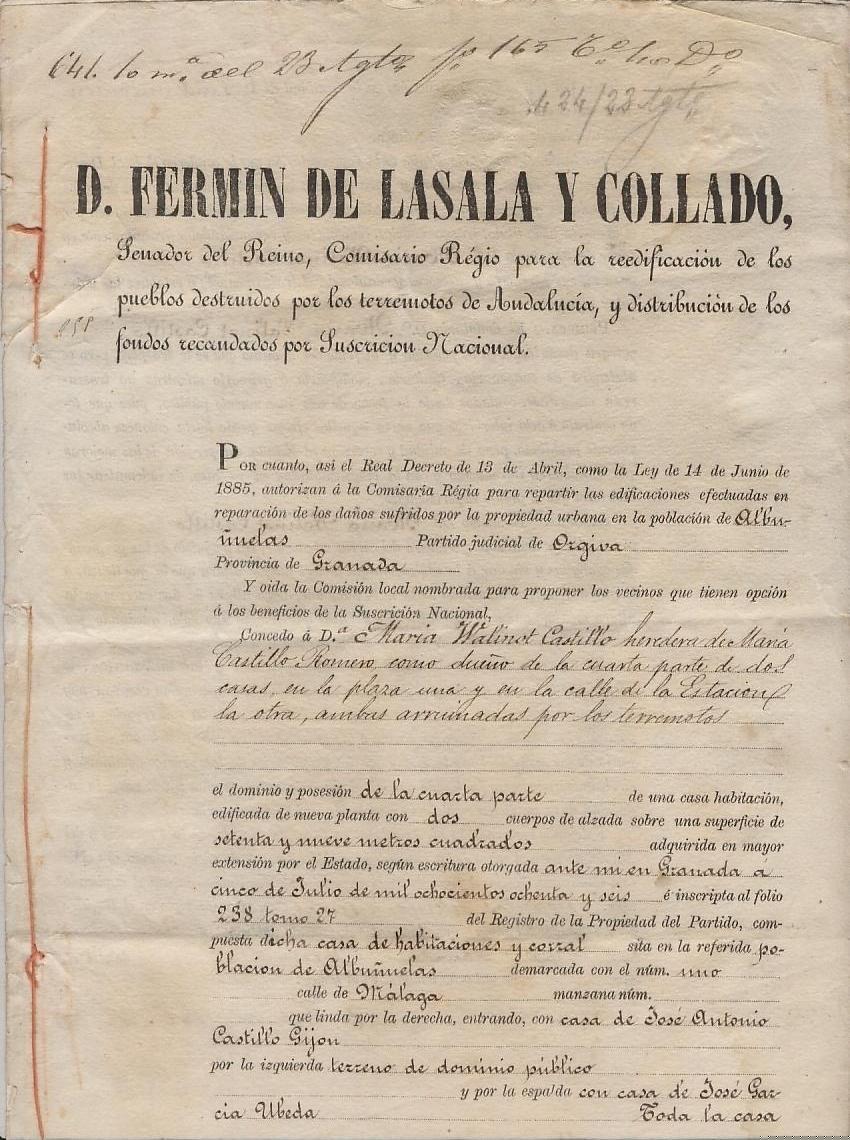 641. to mº. del 23 Agto. fº 165
424/23 Agto.
D. FERMIN DE LASALA Y COLLADO,
Senador del Reino, Comisario Régio para la reedificación de los
pueblos destruidos por los terremotos de Andalucía, y distribución de los
fondos recaudados por Suscricion Nacional.
POR cuanto, asi el Real Decreto de 13 de Abril, como la Ley de 14 de Junio de
1885, autorizan á la Comisaría Régia para repartir las edificaciones efectuadas en
reparación de los daños sufridos por la propiedad urbana en la población de Albu-
ñuelas Partido judicial de Orgiva
Provincia de Granada
Y oida la Comisión local nombrada para proponer los vecinos que tienen opción
á los beneficios de la Suscrición Nacional,
Concedo á D.ª Maria Walinot Castillo heredera de Maria
Castillo Romero, como dueño de la cuarta parte de dos
casas, en la plaza una y en la calle de la Estacion
la otra, ambas arruinadas por los terremotos
el dominio y posesión de la cuarta parte de una casa habitación,
edificada de nueva planta con dos cuerpos de alzada sobre una superficie de
setenta y nueve metros cuadrados adquirida en mayor
extensión por el Estado, según escritura otorgada ante mi en Granada á
cinco de Julio de mil ochocientos ochenta y seis é inscripta al folio
238 tomo 27 del Registro de la Propiedad del Partido, com-
puesta dicha casa de habitaciones y corral sita en la referida po-
blacion de Albuñuelas demarcada con el núm. uno
calle de Málaga manzana núm.
que linda por la derecha, entrando, con casa de José Antonio
Castillo Gijon
por la izquierda terreno de dominio público
y por la espalda con casa de José Gar-
cia Ubeda Toda la casa